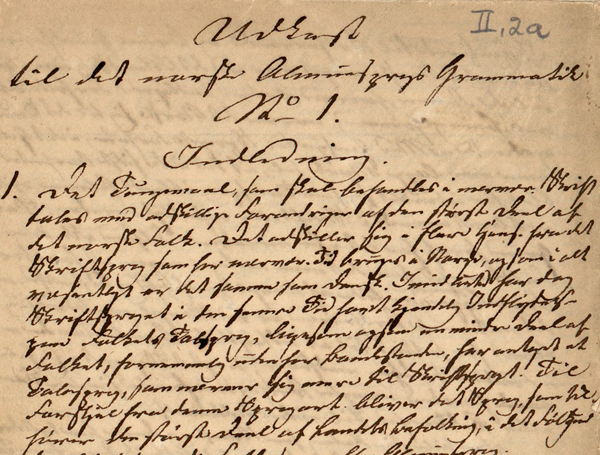 II, 2a
Udkast
til det norske Almuesprogs Grammatik
No 1.
Indledning.
1. Det Tungemaal, som skal behandles i nærværende Skrift
tales med adskillige Forandringer af den største Deel af
det norske Folk. Det adskiller sig i flere Hens. fra det
Skriftsprog som her nærvær. Tid bruges i Norge, og som i alt
væsentligt er det samme som Dansk. Imidlertid har dog
Skriftsproget i den senere Tid havt kjendelig Indflydelse
paa Folkets Talesprog, ligesom ogsaa en mindre Deel af
Folket, fornemmelig indenfor Embedsstanden, har antaget et
Talesprog, som nærmer sig mere til Skriftsproget. Til
Forskjel fra denne Sprogart bliver det Sprog, som til-
hører den største Deel af Landets Befolkning, i det Følgende